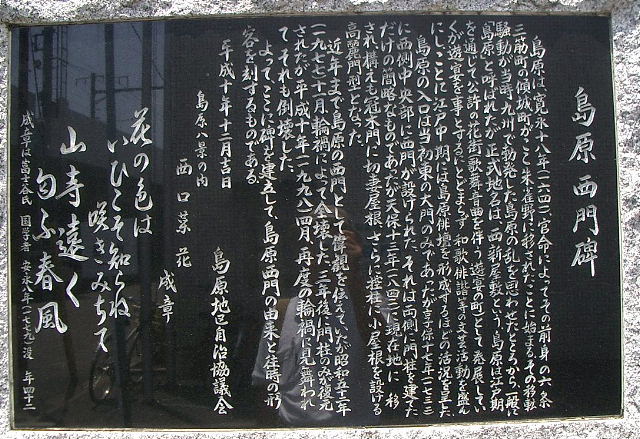 島原西門碑
島原は、寛永十八年（一六四一）、官命によってその前身の六条
三筋町の傾城町がここ朱雀野に移されたことに始まる。その移動
騒動が当時、九州で勃発した島原の乱を思わせたところから、一般に
「島原」と呼ばれたが、正式地名は、西新屋敷という。島原は江戸期
を通じて、公許の花街（歌舞音曲を伴う遊宴の町）として発展してい
くが、遊宴を事とするにとどまらず、和歌俳諧等の文芸活動も盛ん
にし、ことに江戸中期には島原俳壇を形成するほどの活況を呈した。
島原の入口は当初東の大門のみであったが、享保十七年（一七三二）
に西側中央部に西門が設けられた。それは両側に門柱を建てた
だけの簡略なものであったが、天保十三年（一八四二）に現在地に移
され、構えも冠木門に切妻屋根、さらに控柱に小屋根を設ける
高麗門型となった。
近年まで島原の西門として偉観を伝えていたが、昭和五十二年
（一九七七）十一月、輪禍によって全壊した。三年後に門柱のみが復元
されたが、平成十年（一九九八）四月、再度の輪禍に見舞われ
て、それも倒壊した。
よってここに碑を建立して、島原西門の由来と往時の形
容を刻するものである。
平成十年十一月吉日
島原地区自治協議会
島原八景の内
西口菜花
成章
花の色は
いひこそ知らね
咲きみちて
山寺遠く
匂ふ春風
成章は富士谷氏 国学者 安永八年（一七七九）没 年四十二